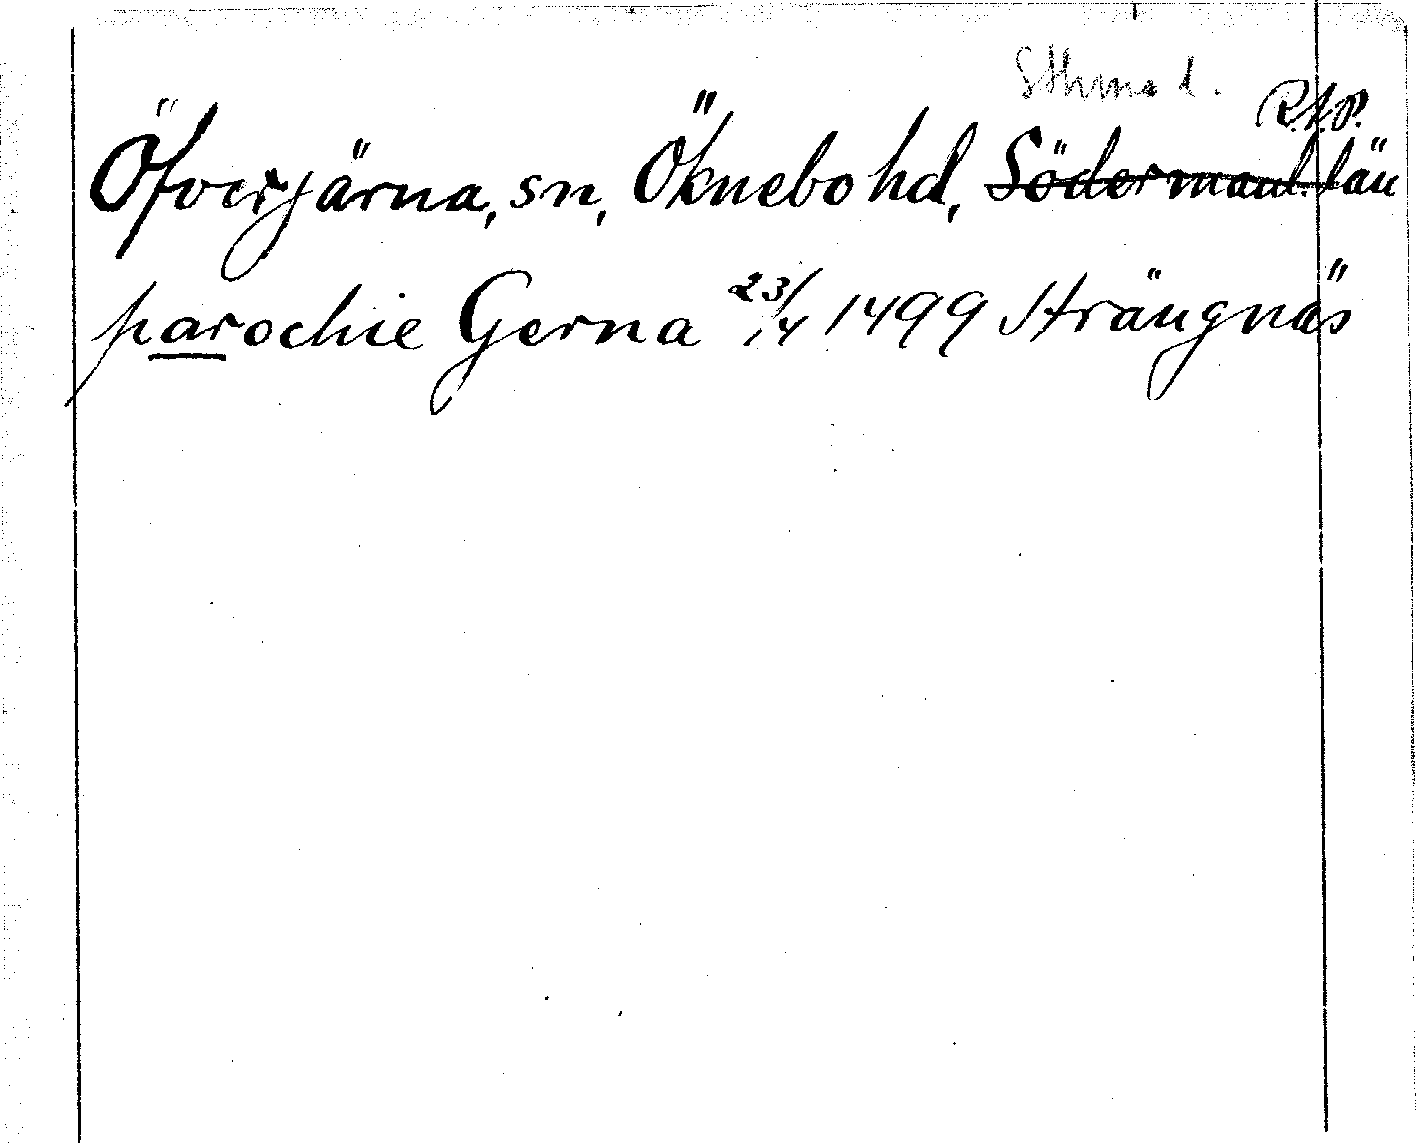 Sthms l.
R.A.P.
Öfverjärna, sn, Öknebo hd, Södermanl. län
parochie Gerna 23/4 1499 Strängnäs